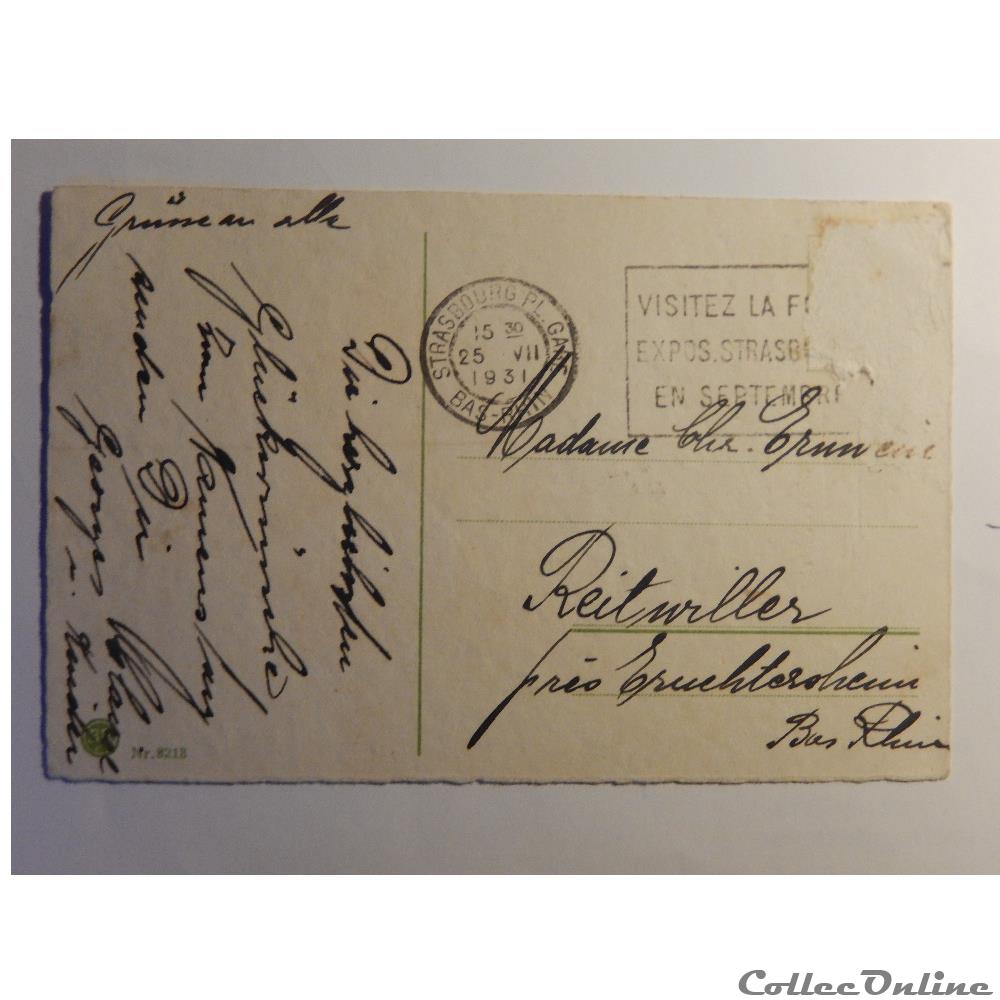 Grüsse an alle
Die herzlichsten
Glückwünsche
zum Namenstag
senden Dir
Georges
u. Kinder
Nr. 8218
STRASBOURG PL. GARE
15 30
25 VII
1931
BAS-RHIN
VISITEZ LA
EXPOS. STRASB
EN SEPTEMBRE
Madame Chr. Ernwein
Reitwiller
près Truchtersheim
Bas Rhin
CollecOnline